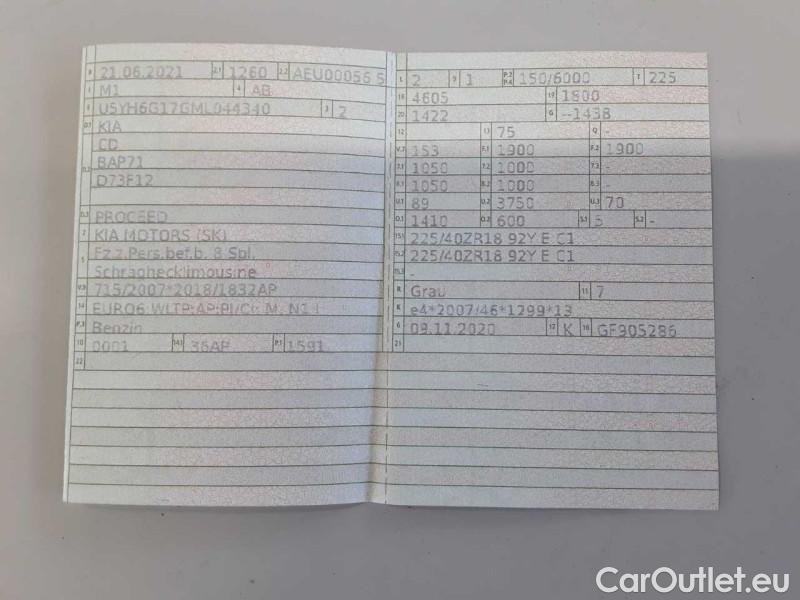 B 21.06.2021 2.1 1260 2.2 AEU00056 5
J M1 4 AB
E U5YH6G17GML044340 3 2
D.1 KIA
CD
D.2 BAP71
D73F12
D.3 PROCEED
2 KIA MOTORS (SK)
5 Fz.z.Pers.bef.b. 8 Spl.
Schraghecklimousine
V.9 715/2007*2018/1832AP
14 EURO6 WLTP:AP:PI/CI: M, N1 I
P.3 Benzin
10 0001 14.1 36AP P.1 1591
22
L 2 9 1 P.2 P.4 150/6000 T 225
18 4605 19 1800
20 1422 G --1438
12 13 75 Q -
V.7 153 F.1 1900 F.2 1900
7.1 1050 7.2 1000 7.3 -
8.1 1050 8.2 1000 8.3 -
U.1 89 U.2 3750 U.3 70
O.1 1410 O.2 600 S.1 5 S.2 -
15.1 225/40ZR18 92Y E C1
15.2 225/40ZR18 92Y E C1
15.3 -
R Grau 11 7
K e4*2007/46*1299*13
6 09.11.2020 17 K 16 GF905286
21
CarOutlet.eu